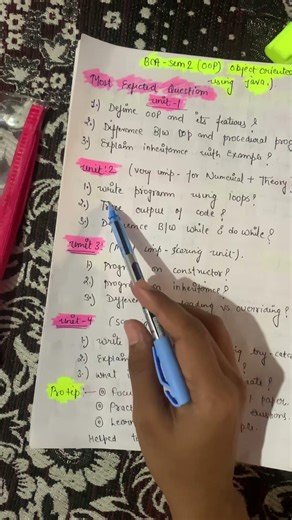 BCA - Sem 2 (OOP) Object oriented
using java.)
Most Expected Question
Unit-1
1) Define OOP and its features?
2) Difference B/W OOP and procedural prog
3) Explain inheritance with Example?
Unit 2 (very imp - for Numerical + Theory
1) Write program using loops?
2) output of code?
3) Difference B/W while & do while?
Unit 3 imp - scoring unit-).
1) Prog on constructor?
2) program on inheritance?
3) Differ loading vs overriding?
Unit-4
1) Write try-catc
2) Explain
3) what
Pro tip:- paper.
Pract
Learn
Helped